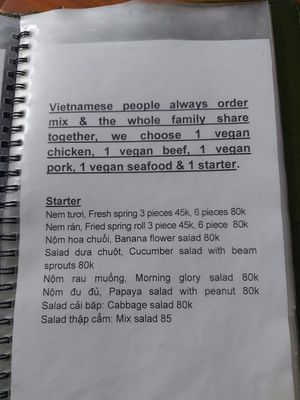 Vietnamese people always order
mix & the whole family share
together, we choose 1 vegan
chicken, 1 vegan beef, 1 vegan
pork, 1 vegan seafood & 1 starter.
Starter
Nem tươi, Fresh spring 3 pieces 45k, 6 pieces 80k
Nem rán, Fried spring roll 3 piece 45k, 6 piece 80k
Nộm hoa chuối, Banana flower salad 80k
Salad dưa chuột, Cucumber salad with beam
sprouts 80k
Nộm rau muống, Morning glory salad 80k
Nộm đu đủ, Papaya salad with peanut 80k
Salad cải băp: Cabbage salad 80k
Salad thập cẩm: Mix salad 85